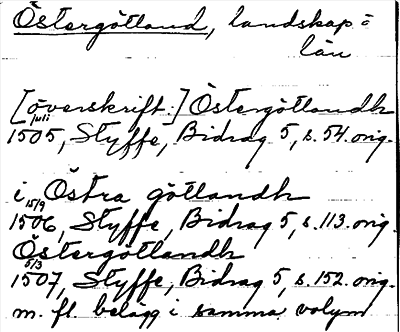 Östergötland, landskap =
län
[överskrift.] Östergötlandh
juli
1505, Styffe, Bidrag 5, s. 54. orig.
i Östra götlandh
15/9
1506, Styffe, Bidrag 5, s. 113. orig.
Östergötlandh
5/3
1507, Styffe, Bidrag 5, s. 152. orig.
m. fl. belägg i samma volym